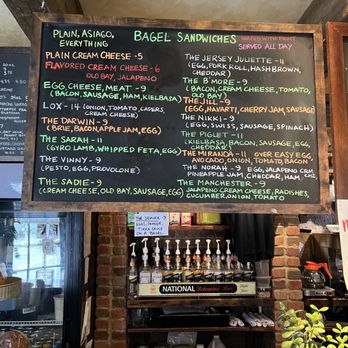 PLAIN, ASIAGO,
EVERYTHING
BAGEL SANDWICHES
SERVED ALL DAY
PLAIN CREAM CHEESE -5
FLAVORED CREAM CHEESE -6
OLD BAY, JALAPENO
EGG, CHEESE, MEAT -9
(BACON, SAUSAGE, HAM, KIELBASA)
LOX -14 (ONION, TOMATO, CAPERS,
CREAM CHEESE)
THE DARWIN -9
(BRIE, BACON, APPLE JAM, EGG)
THE SARAH -11
(GYRO LAMB, WHIPPED FETA, EGG)
THE VINNY -9
(PESTO, EGG, PROVOLONE)
THE SADIE -9
(CREAM CHEESE, OLD BAY, SAUSAGE, EGG)
THE JERSEY JULIETTE -11
(EGG, PORK ROLL, HASH BROWN,
CHEDDAR)
THE B'MORE -9
(BACON, CREAM CHEESE, TOMATO,
OLD BAY)
THE JILL -9
(EGG, HAVARTI, CHERRY JAM, SAUSAGE)
THE NIKKI -9
(EGG, SWISS, SAUSAGE, SPINACH)
THE PIGLET -11
(KIELBASA, BACON, SAUSAGE, EGG,
CHEDDAR)
THE MIRANDA -11 OVER EASY EGG,
AVOCADO, ONION, TOMATO, BACON
THE NORAH -9 EGG, JALAPENO CRM
PINEAPPLE JAM, CHEDDAR, HAM
THE MANCHESTER -9
JALAPENO CREAM CHEESE, RADISHES,
CUCUMBER, ONION, TOMATO
ON A BAGEL
NATIONAL